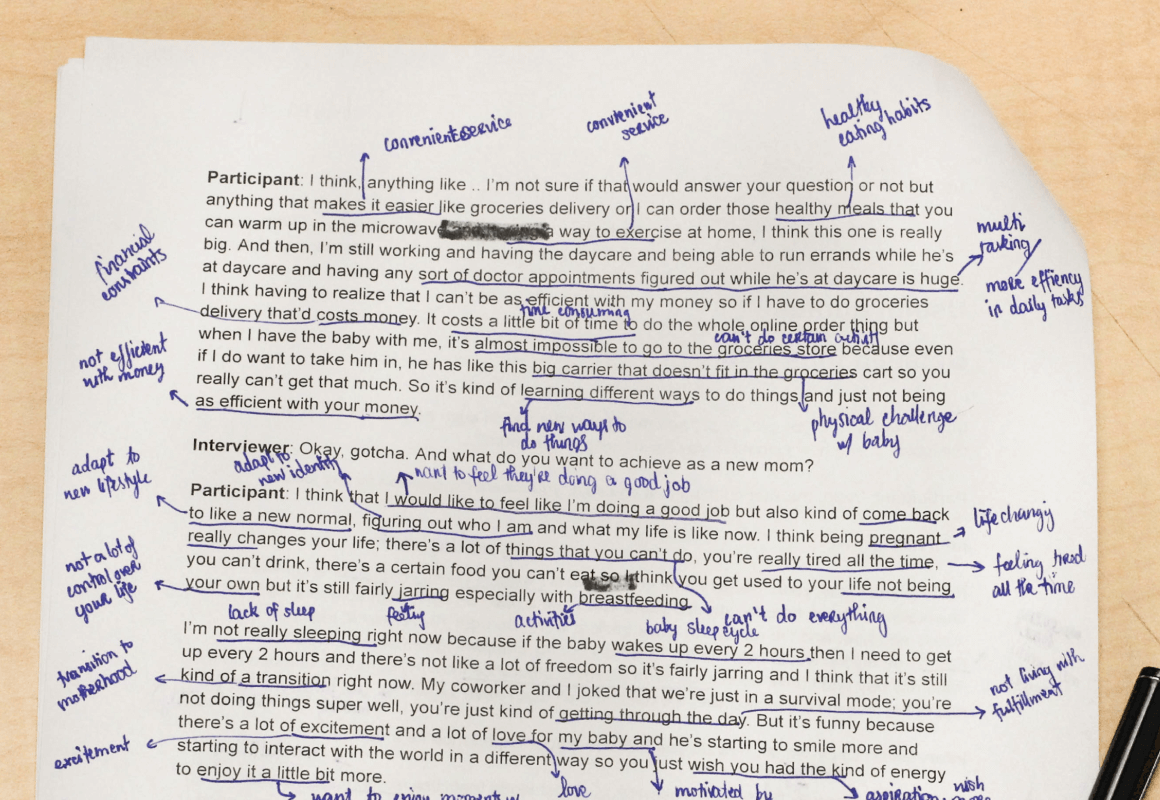 convenient service
convenient
service
healthy
eating habits
Participant: I think, anything like .. I'm not sure if that would answer your question or not but
anything that makes it easier like groceries delivery or I can order those healthy meals that you
can warm up in the microwave a way to exercise at home, I think this one is really
big. And then, I'm still working and having the daycare and being able to run errands while he's
at daycare and having any sort of doctor appointments figured out while he's at daycare is huge.
I think having to realize that I can't be as efficient with my money so if I have to do groceries
delivery that'd costs money. It costs a little bit of time to do the whole online order thing but
when I have the baby with me, it's almost impossible to go to the groceries store because even
if I do want to take him in, he has like this big carrier that doesn't fit in the groceries cart so you
really can't get that much. So it's kind of learning different ways to do things and just not being
as efficient with your money.
multi
tasking
more efficiency
in daily tasks
financial
constraints
time consuming
can't do certain
not efficient
with money
find new ways to
do things
physical challenge
w/ baby
Interviewer: Okay, gotcha. And what do you want to achieve as a new mom?
adapt to
new identity
want to feel they're doing a good job
adapt to
new lifestyle
Participant: I think that I would like to feel like I'm doing a good job but also kind of come back
to like a new normal, figuring out who I am and what my life is like now. I think being pregnant
really changes your life; there's a lot of things that you can't do, you're really tired all the time,
you can't drink, there's a certain food you can't eat so I think you get used to your life not being
your own but it's still fairly jarring especially with breastfeeding.
life changy
feeling tired
all the time
not a lot of
control over
your life
lack of sleep
feeling
activities
baby sleep cycle
can't do everything
I'm not really sleeping right now because if the baby wakes up every 2 hours then I need to get
up every 2 hours and there's not like a lot of freedom so it's fairly jarring and I think that it's still
kind of a transition right now. My coworker and I joked that we're just in a survival mode; you're
not doing things super well, you're just kind of getting through the day. But it's funny because
there's a lot of excitement and a lot of love for my baby and he's starting to smile more and
starting to interact with the world in a different way so you just wish you had the kind of energy
to enjoy it a little bit more.
transition to
motherhood
not living with
fulfillment
excitement
want to enjoy moments
love
motivated by
aspiration
wish